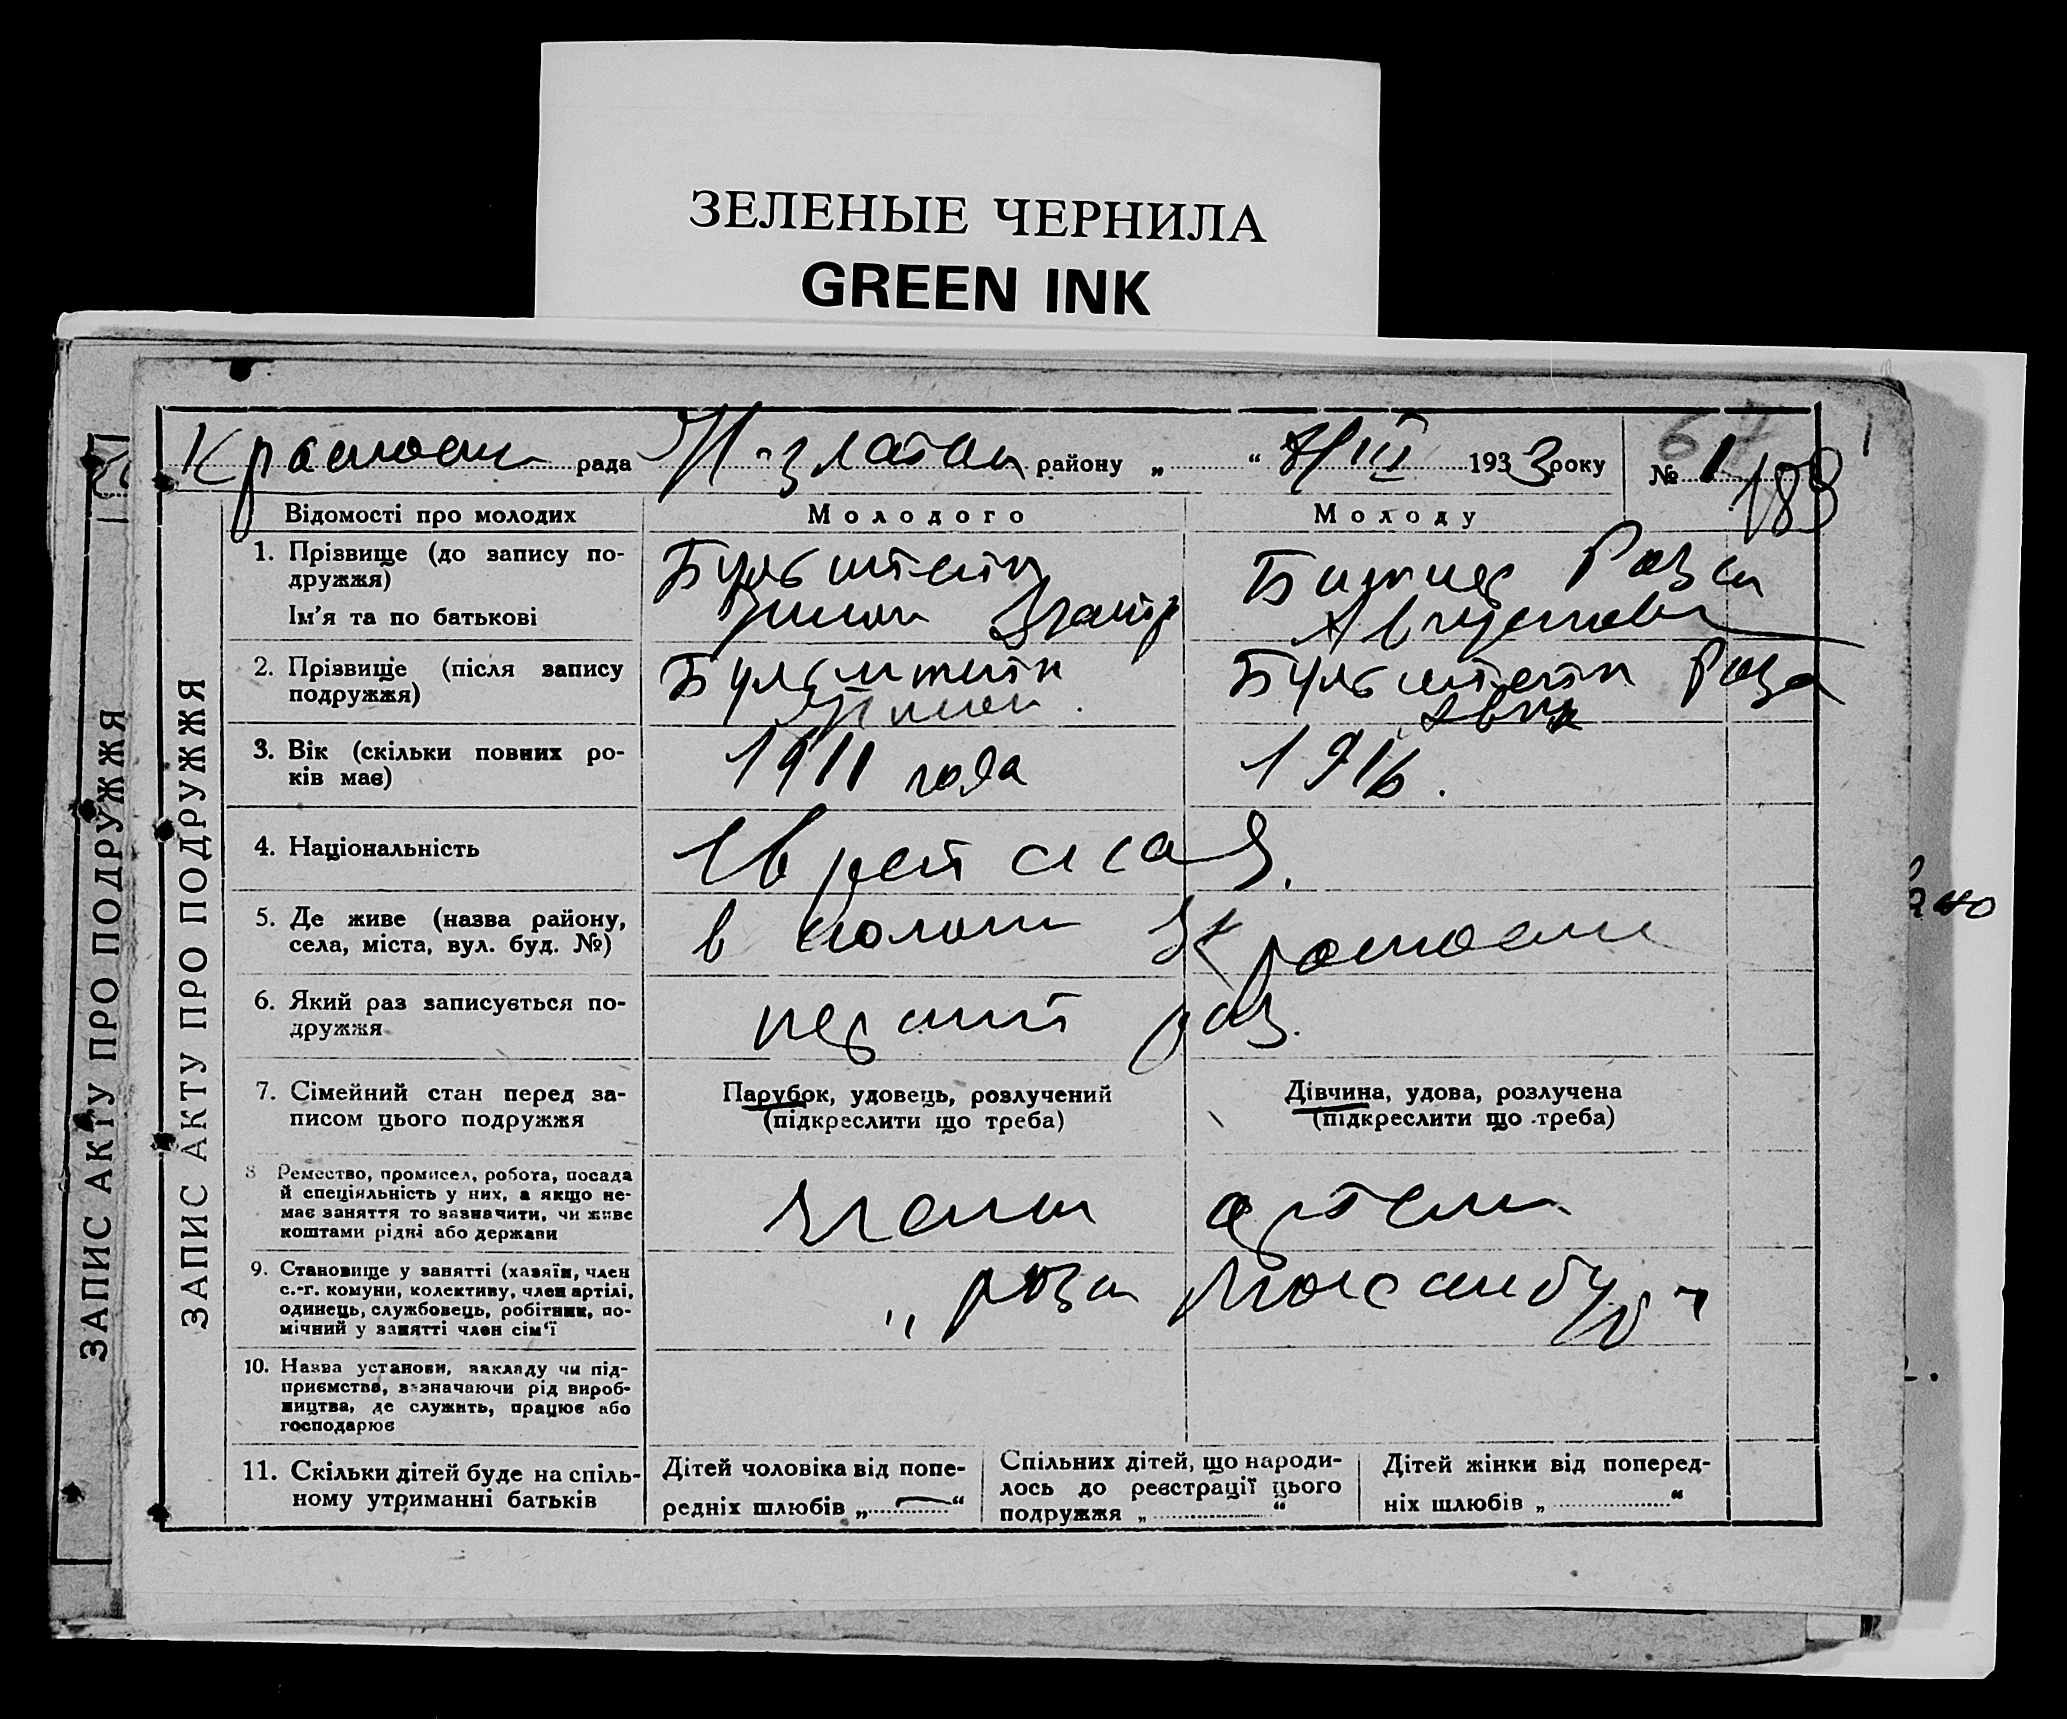 ЗЕЛЕНЫЕ ЧЕРНИЛА
GREEN INK
рада району „ “ 8/III 1933 року № 1
67
183
ЗАПИС АКТУ ПРО ПОДРУЖЖЯ
ЗАПИС АКТУ ПРО ПОДРУЖЖЯ
Відомості про молодих Молодого Молоду
1. Прізвище (до запису по-
дружжя)
Ім'я та по батькові
Бульштейн
Роза
2. Прізвище (після запису
подружжя)
Бульштейн
Бульштейн Роза
3. Вік (скільки повних ро-
ків має)
1911 года
1916.
4. Національність
Еврейская.
5. Де живе (назва району,
села, міста, вул. буд. №)
в
6. Який раз записується по-
дружжя
первий раз.
7. Сімейний стан перед за-
писом цього подружжя
Парубок, удовець, розлучений
(підкреслити що треба)
Дівчина, удова, розлучена
(підкреслити що треба)
8 Ремество, промисел, робота, посада
й спеціяльність у них, а якщо не-
має заняття то зазначити, чи живе
коштами рідні або держави
члени артели
9. Становище у занятті (хазяїн, член
с.-г. комуни, колективу, член артілі,
одинець, службовець, робітник, по-
мічний у занятті член сім'ї
„ роза Люксембург "
10. Назва установи, закладу чи під-
приємства, зазначаючи рід вироб-
ництва, де служить, працює або
господарює
11. Скільки дітей буде на спіль-
ному утриманні батьків
Дітей чоловіка від попе-
редніх шлюбів „ — “
Спільних дітей, що народи-
лось до реєстрації цього
подружжя „ “
Дітей жінки від поперед-
ніх шлюбів „ “